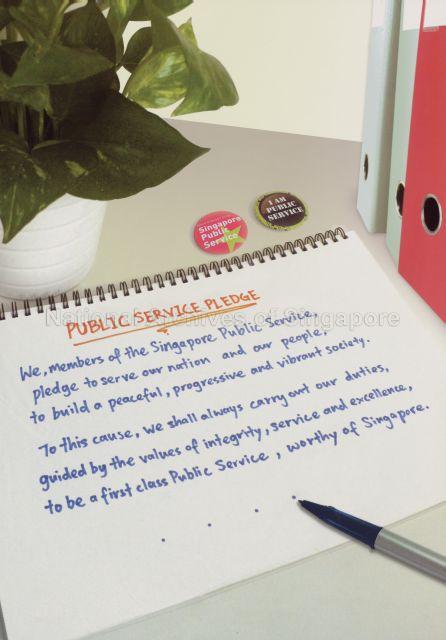 Singapore
Public
Service
I AM
PUBLIC
SERVICE
National Archives of Singapore
PUBLIC SERVICE PLEDGE
We, members of the Singapore Public Service,
pledge to serve our nation and our people:
to build a peaceful, progressive and vibrant society.
To this cause, we shall always carry out our duties,
guided by the values of integrity, service and excellence,
to be a first class Public Service, worthy of Singapore.